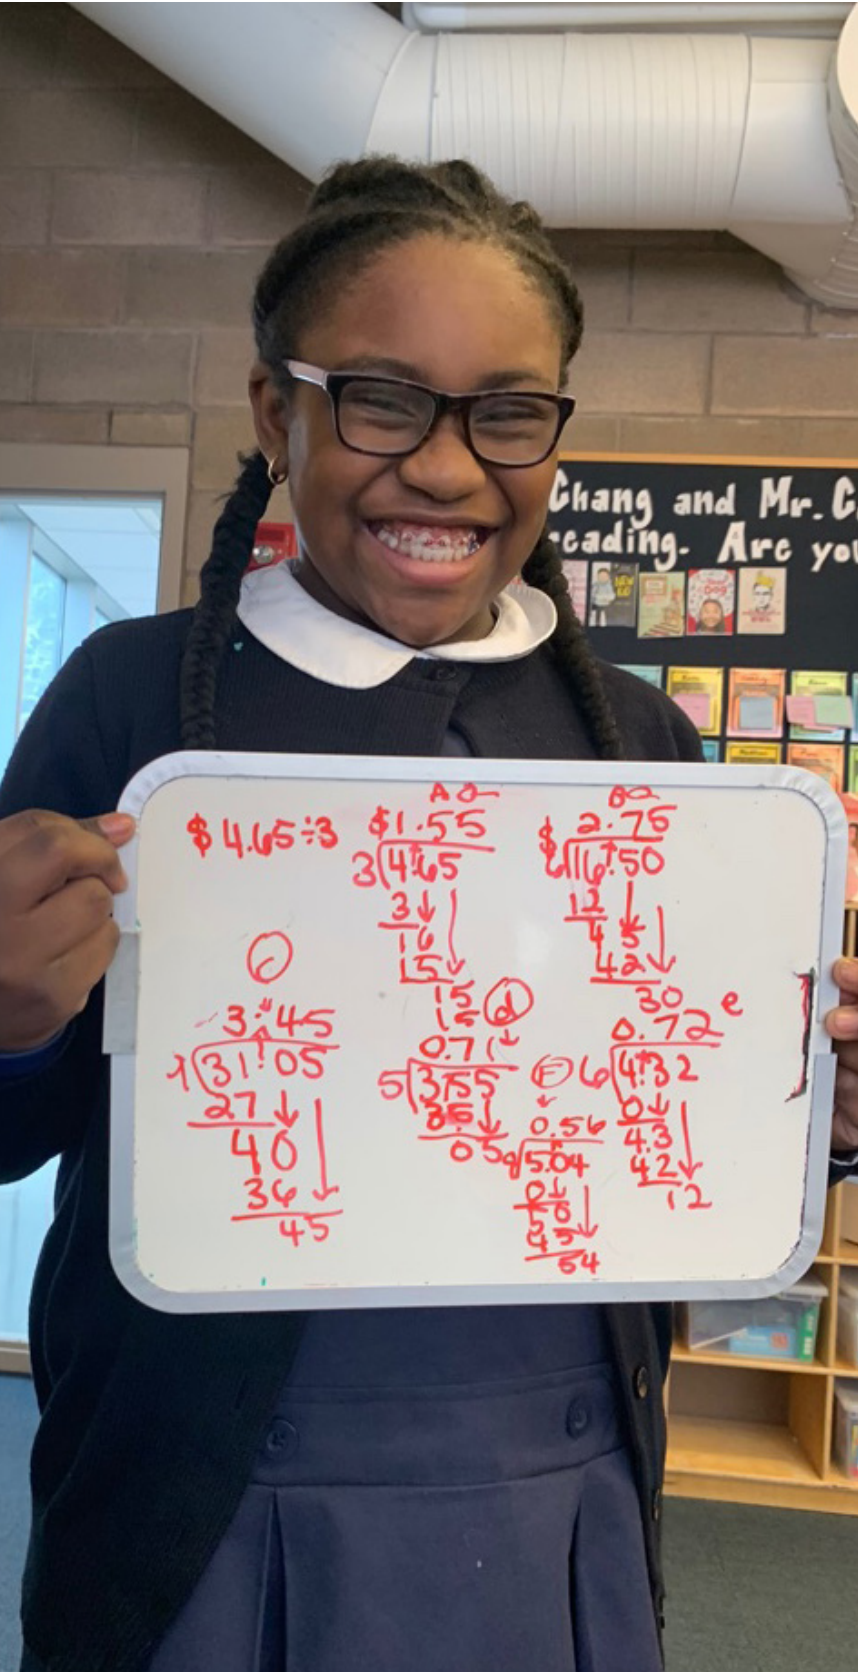 Chang and Mr. C
eading. Are you
$4.65÷3
A
$1.55
3 4.65
3
16
15
15
15
B
2.75
$6 16.50
12
45
42
30
C
3.45
9 31.05
27
40
36
45
d
0.71
5 3.55
35
05
e
0.72
6 4.32
0
4.3
42
12
F
0.56
9 5.04
0
50
45
54